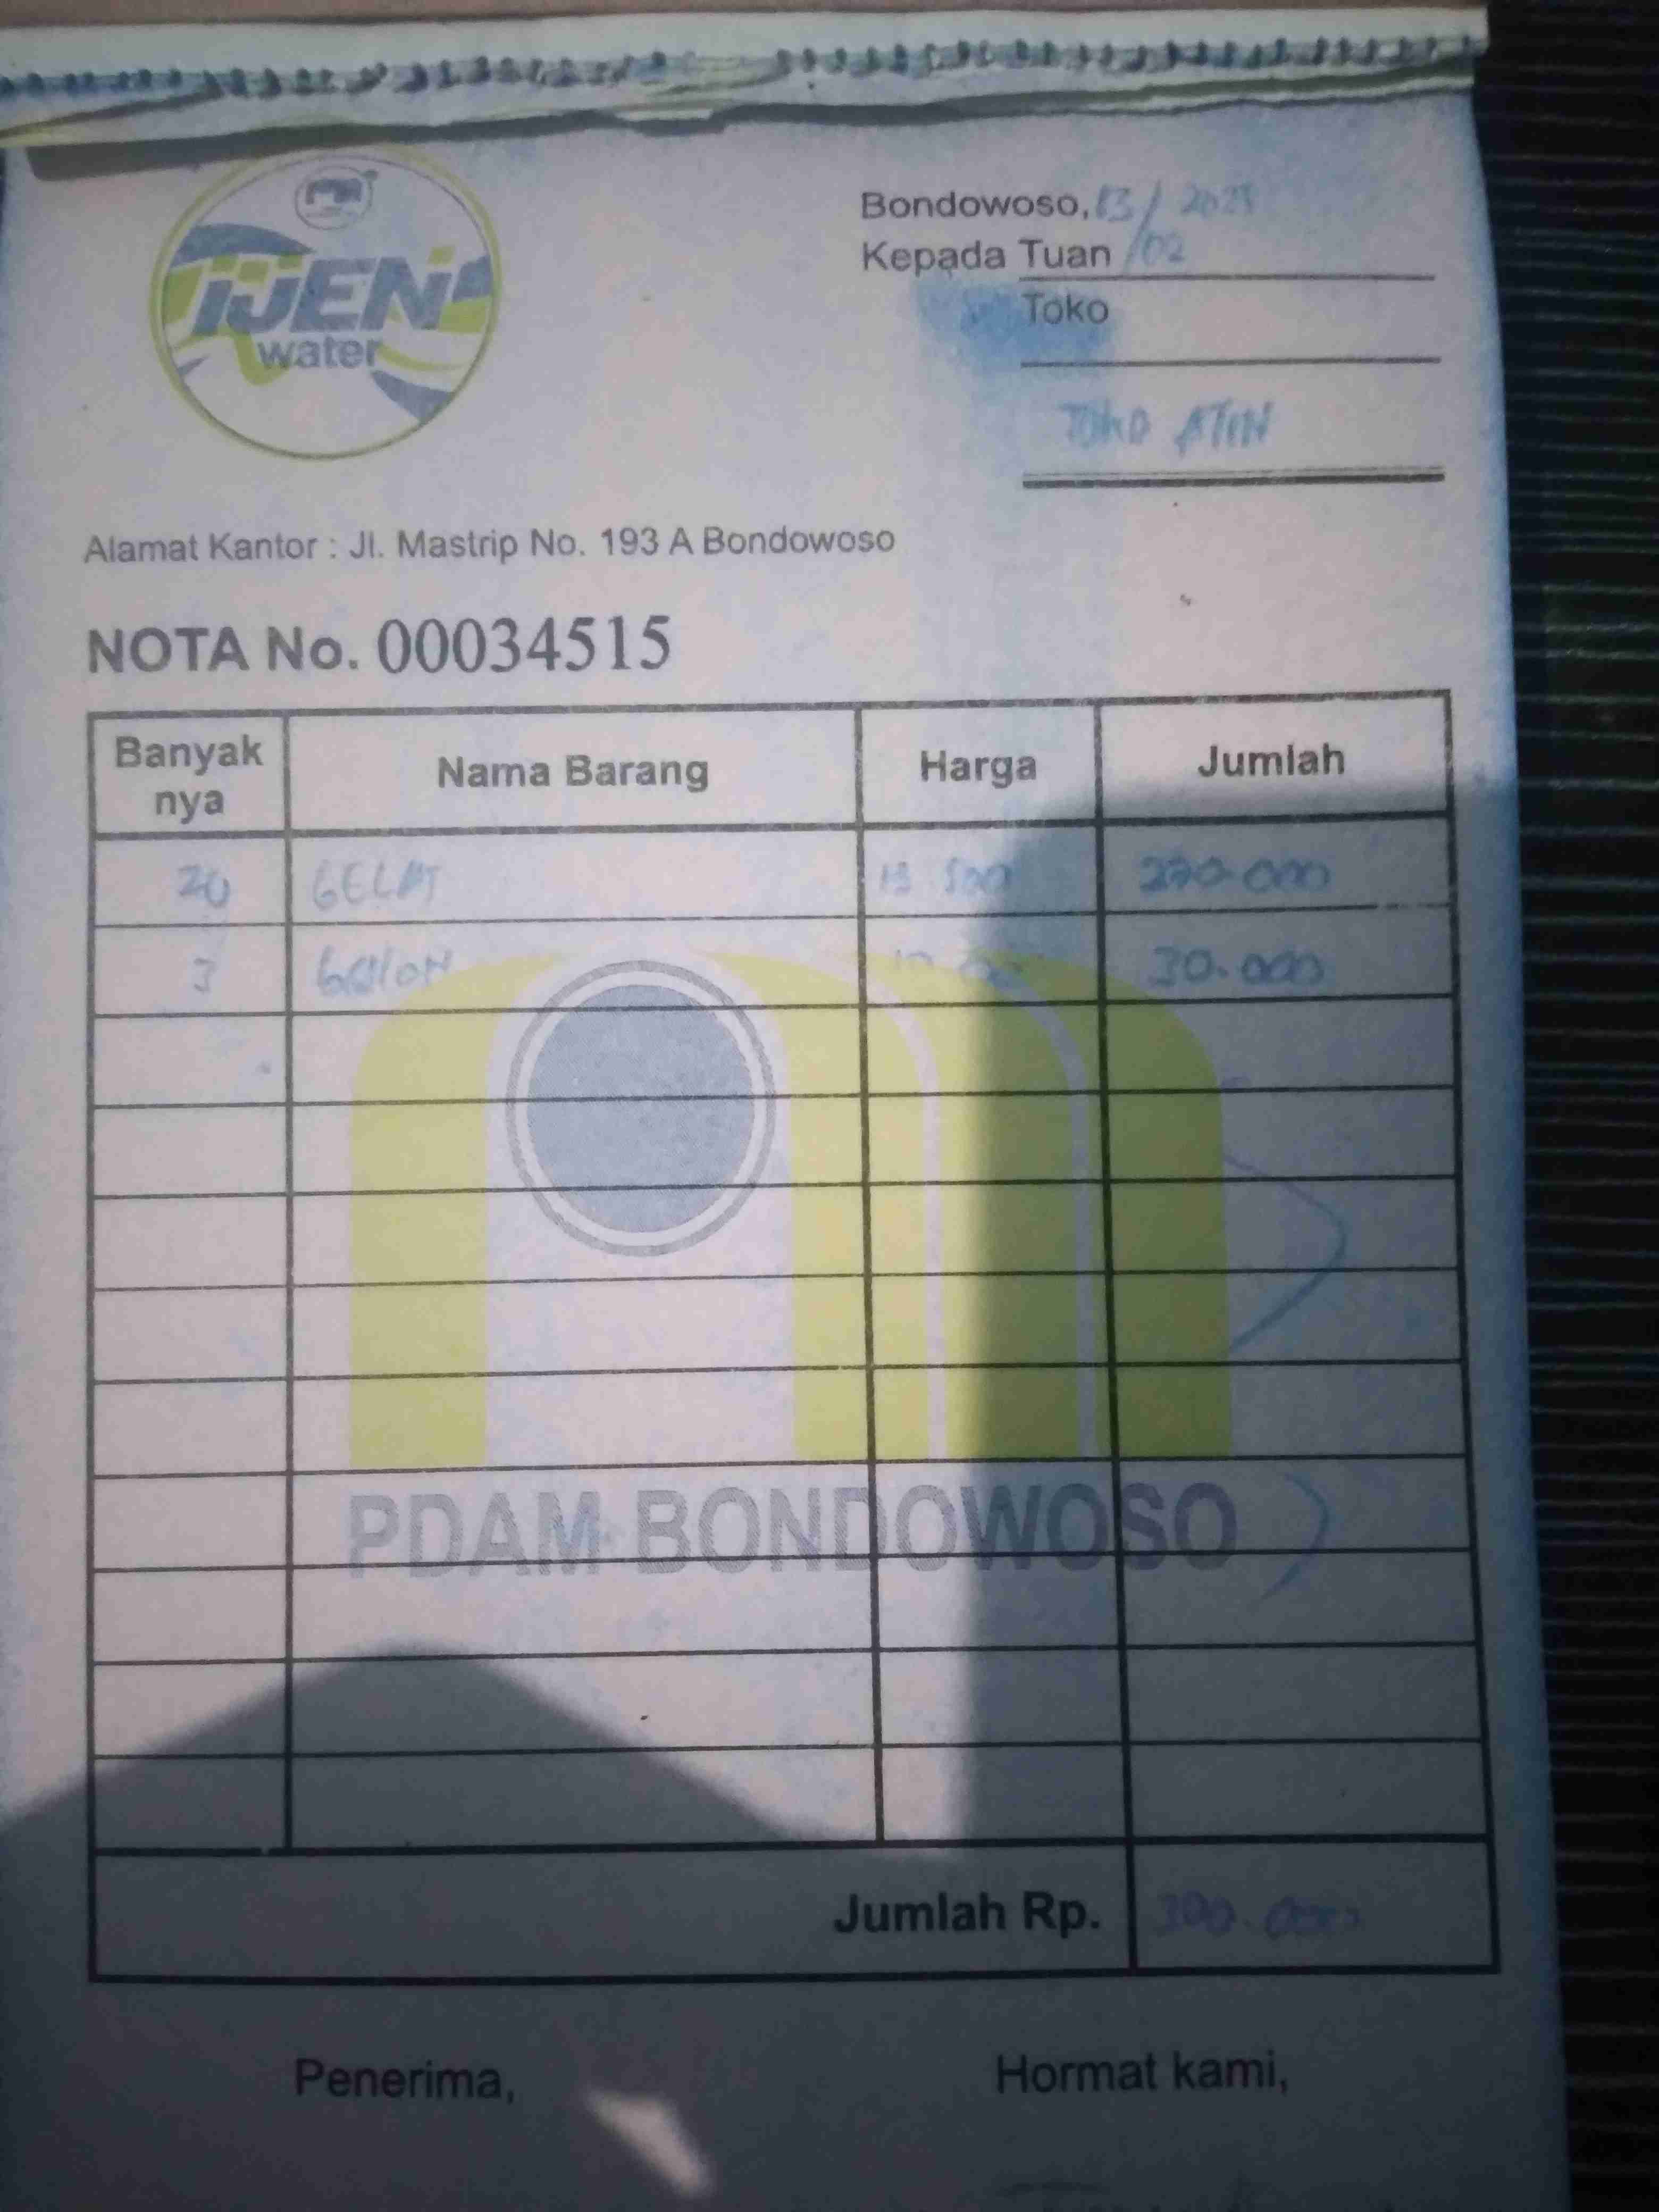 iJEN
water
Bondowoso, 13/02
Kepada Tuan
Toko
TOKO ATIN
Alamat Kantor : Jl. Mastrip No. 193 A Bondowoso
NOTA No. 00034515
Banyak nya Nama Barang Harga Jumlah
20 GELAS 13 500 270.000
3 GALON 30.000
PDAM BONDOWOSO
Jumlah Rp. 300.000
Penerima, Hormat kami,